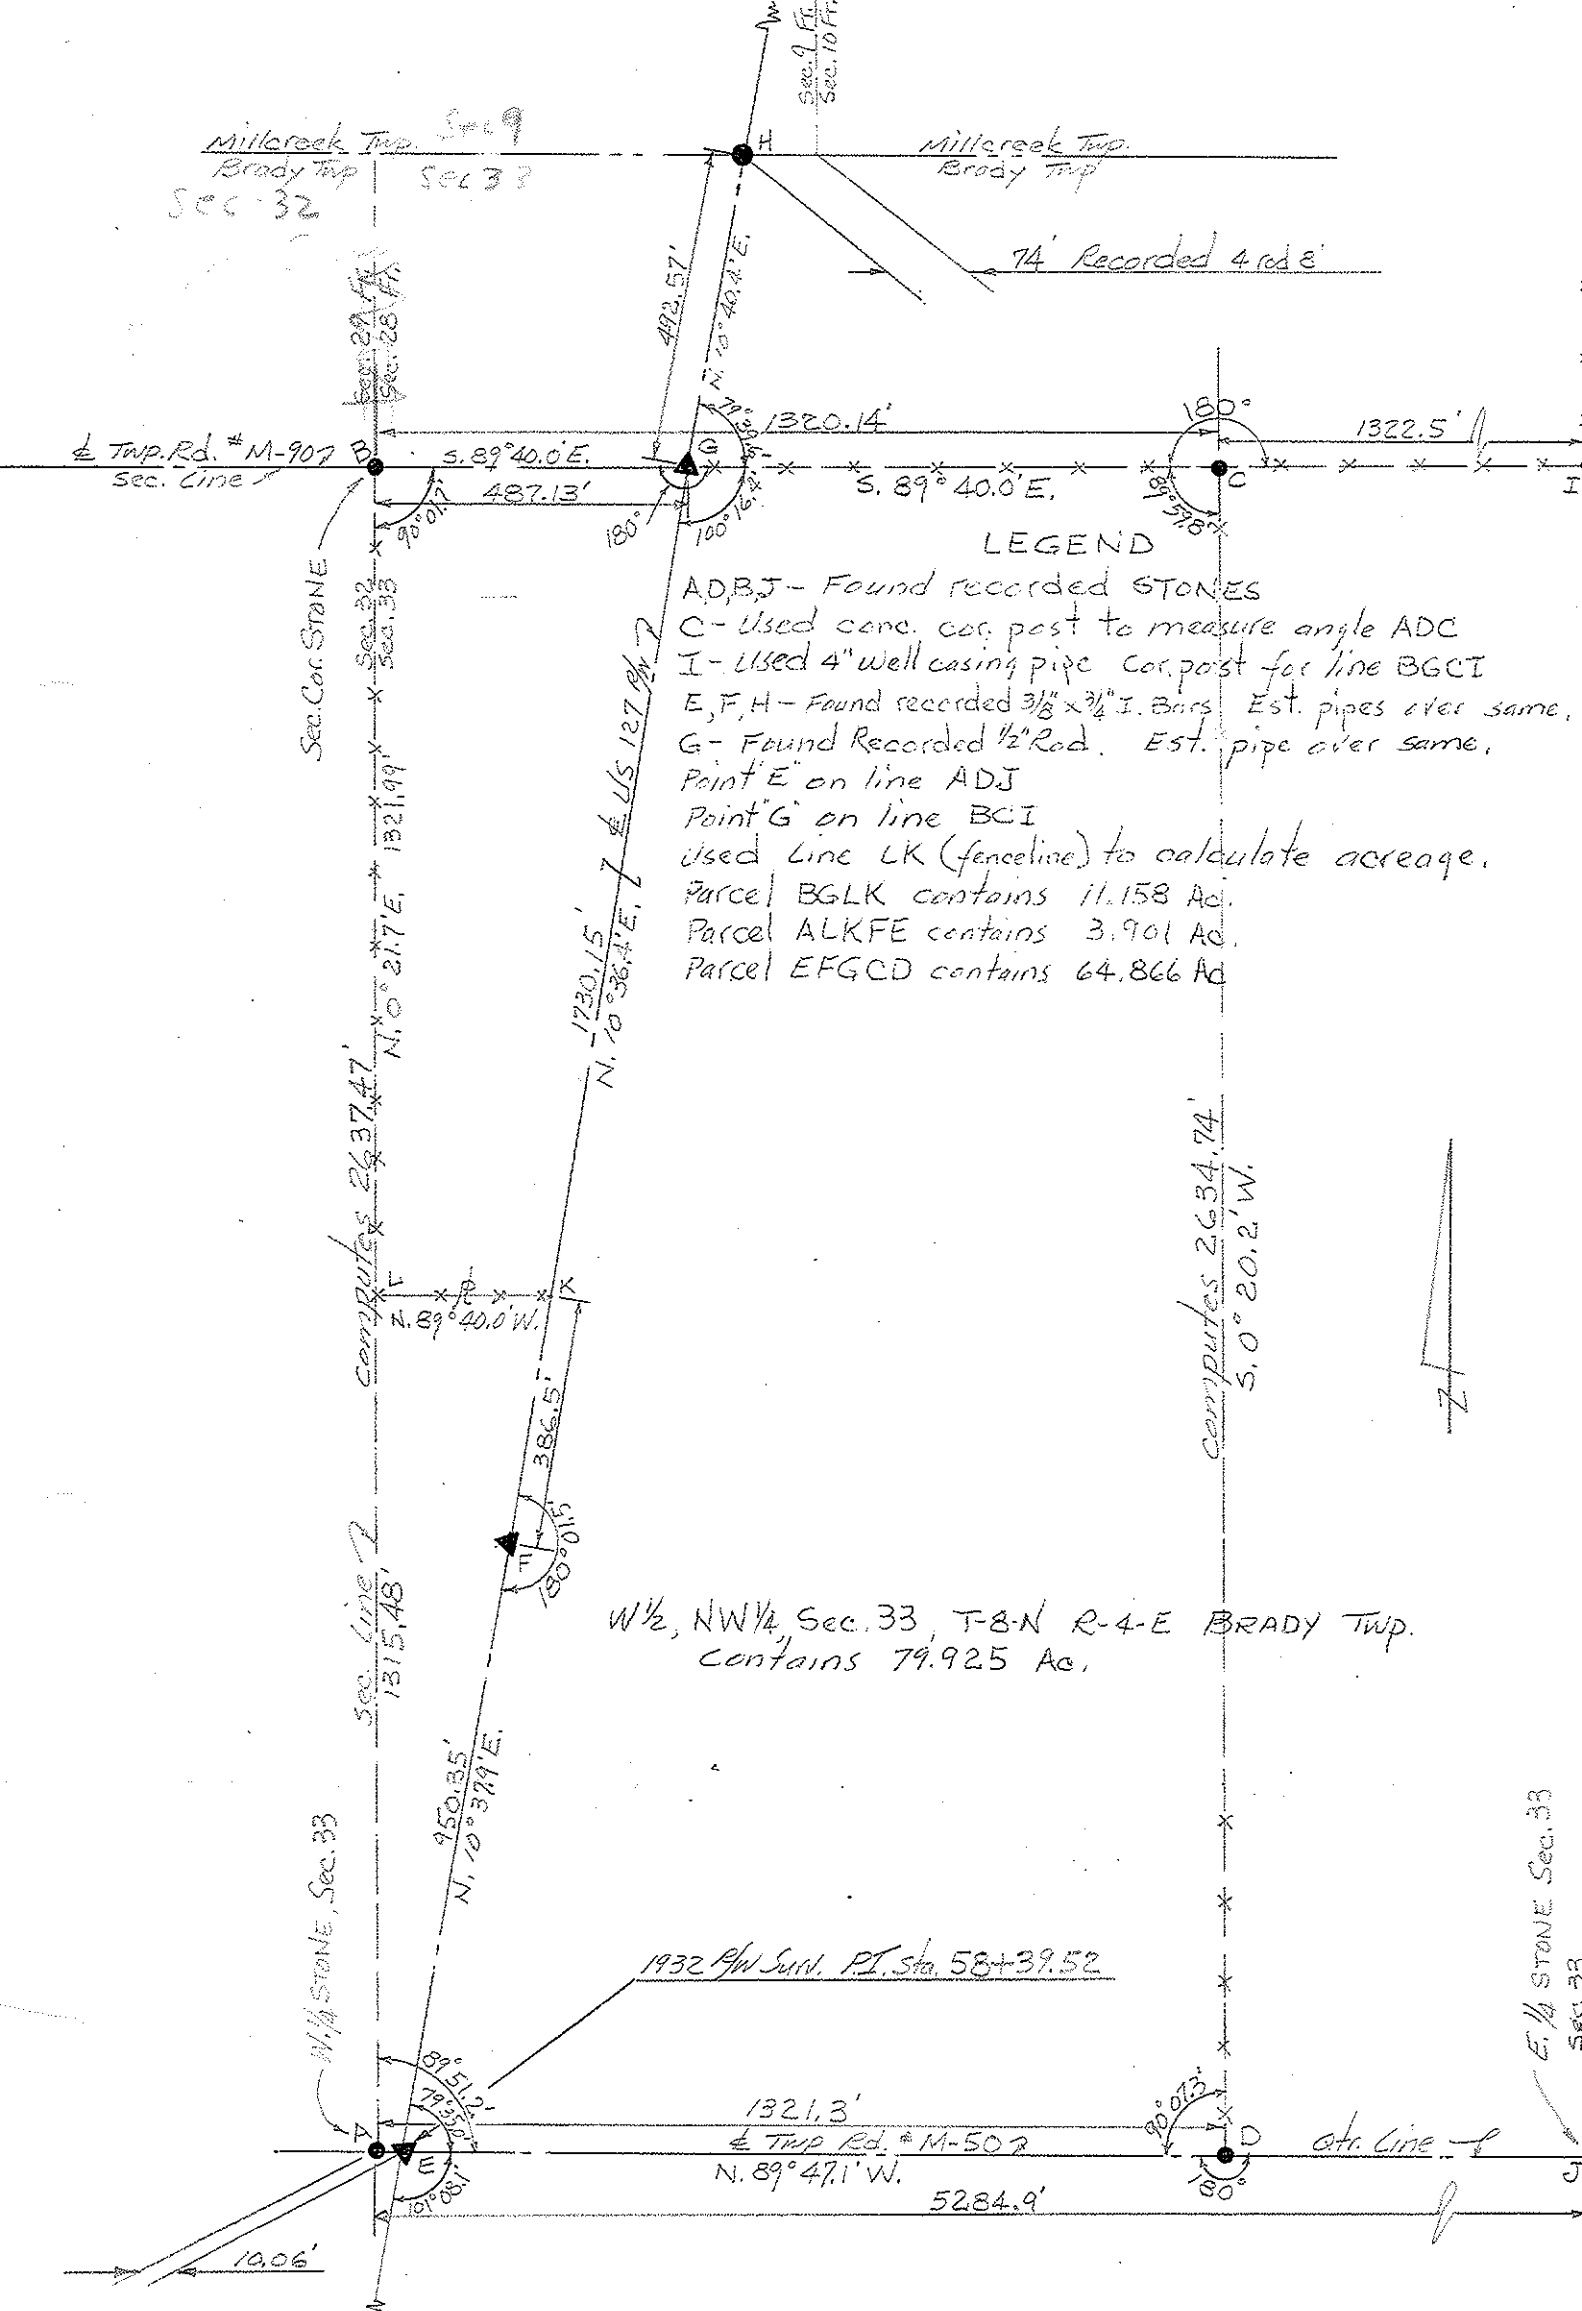 Sec. 9 Fr.
Sec. 10 Fr.
Millcreek Twp. Sec 9
Brady Twp Sec 33
Sec 32
H
Millcreek Twp.
Brady Twp
74' Recorded 4 rod 8'
492.57'
N. 10° 40.4' E.
Sec. 29 Fr.
Sec. 28 Fr.
₵ Twp. Rd. # M-907
Sec. Line
B
S. 89° 40.0' E.
487.13'
G
1320.14'
180°
1322.5'
S. 89° 40.0' E.
C
I
90° 01.7'
180°
100° 16.4'
Sec. Cor. STONE
Sec. 32
Sec. 33
LEGEND
A,D,B,J - Found recorded STONES
C - Used conc. cor. post to measure angle ADC
I - Used 4" well casing pipe Cor. post for line BGCI
E, F, H - Found recorded 3/8" x 3/4" I. Bars Est. pipes over same.
G - Found Recorded 1/2" Rod. Est. pipe over same.
Point "E" on line ADJ
Point "G" on line BCI
Used Line LK (fenceline) to calculate acreage.
Parcel BGLK contains 11.158 Ac.
Parcel ALKFE contains 3.901 Ac.
Parcel EFGCD contains 64.866 Ac
₵ US 127 R/W
1730.15'
N. 10° 36.4' E.
1321.99'
N. 0° 21.7' E.
computes 2637.47'
computes 2634.74'
S. 0° 20.2' W.
L
K
N. 89° 40.0' W.
386.5'
F
180° 01.5'
N
Sec. Line
1315.48'
W 1/2, NW 1/4, Sec. 33, T-8-N R-4-E BRADY Twp.
Contains 79.925 Ac.
950.35'
N. 10° 37.9' E.
W. 1/4 STONE, Sec. 33
1932 R/W Surv. P.I. Sta. 58+39.52
E. 1/4 STONE Sec. 33
Sec. 33
89° 51.2'
79° 35.0'
A
E
101° 08.1'
1321.3'
₵ Twp Rd. # M-50
N. 89° 47.1' W.
90° 07.3'
D
180°
Qtr. Line
J
5284.9'
10.06'